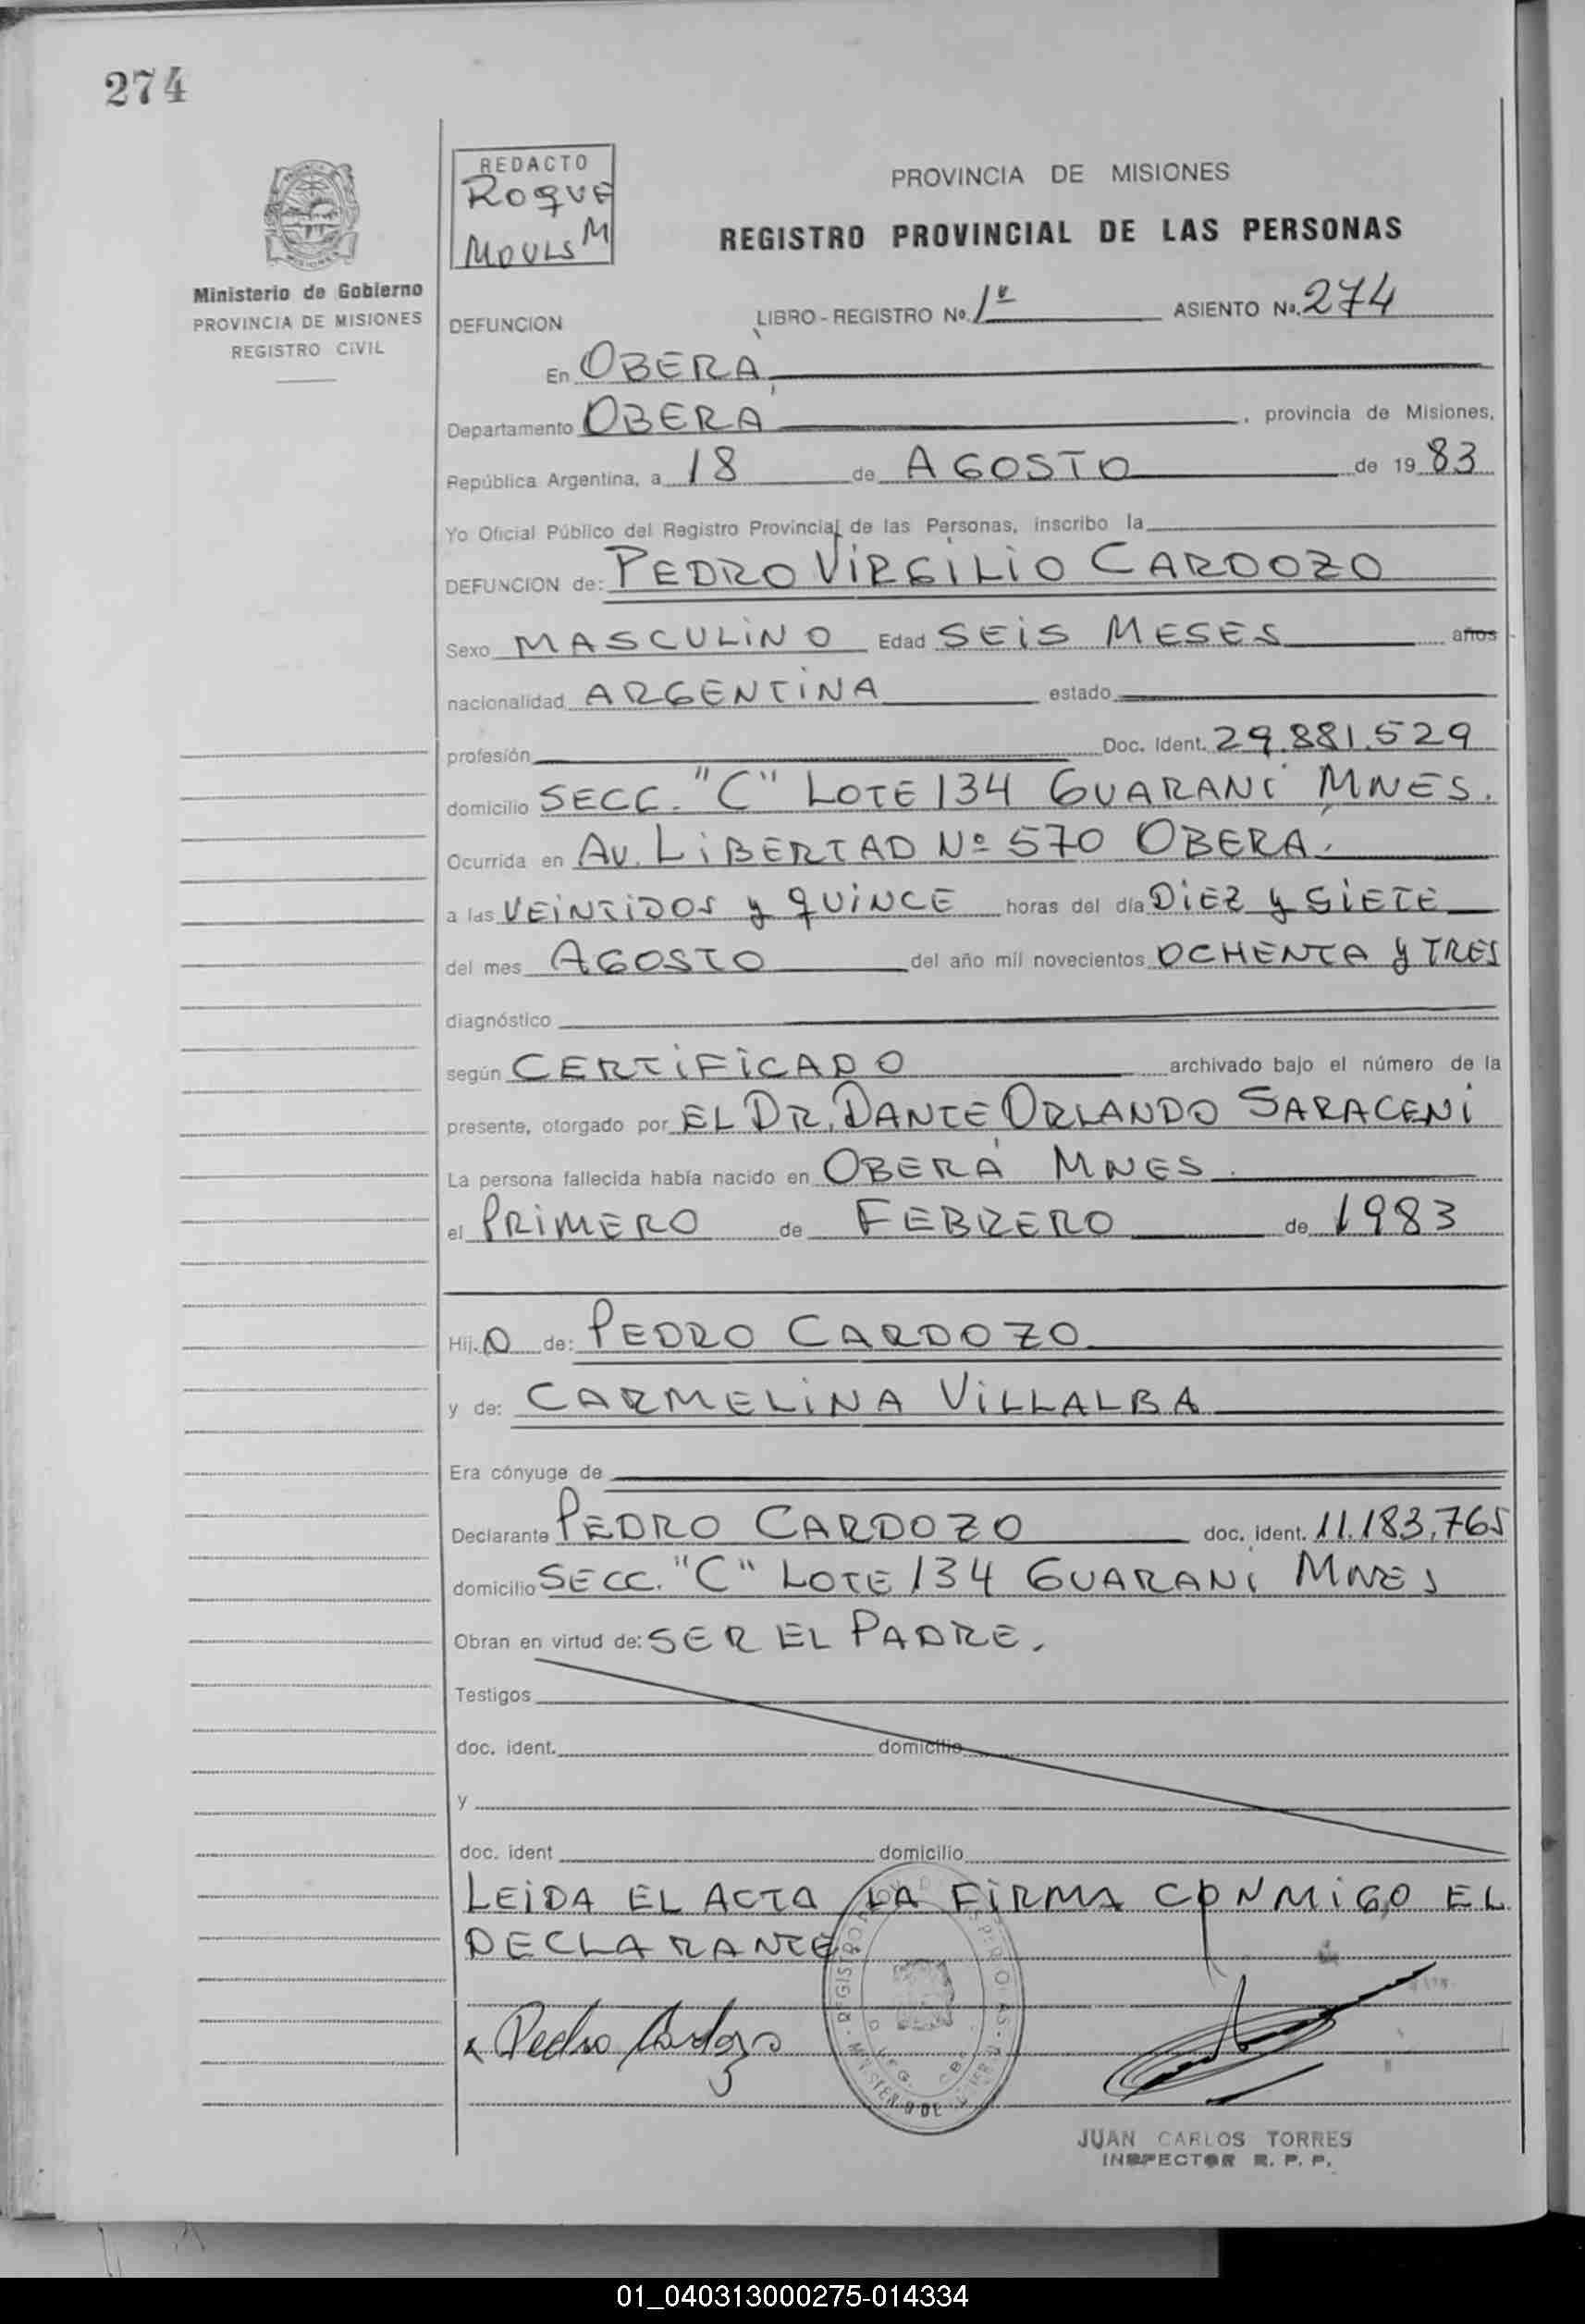 274
REDACTO
ROQUE
M
PROVINCIA DE MISIONES
REGISTRO PROVINCIAL DE LAS PERSONAS
Ministerio de Gobierno
PROVINCIA DE MISIONES
REGISTRO CIVIL
DEFUNCION LIBRO - REGISTRO No. 1º ASIENTO No. 274
En OBERÁ
Departamento OBERÁ, provincia de Misiones,
República Argentina, a 18 de AGOSTO de 19 83
Yo Oficial Público del Registro Provincial de las Personas, inscribo la
DEFUNCION de: PEDRO VIRGILIO CARDOZO
Sexo MASCULINO Edad SEIS MESES años
nacionalidad ARGENTINA estado
profesión Doc. Ident. 29.881.529
domicilio SECC. "C" LOTE 134 GUARANÍ MNES.
Ocurrida en AV. LIBERTAD Nº 570 OBERÁ.
a las VEINTIDOS y QUINCE horas del día DIEZ y SIETE
del mes AGOSTO del año mil novecientos OCHENTA y TRES
diagnóstico
según CERTIFICADO archivado bajo el número de la
presente, otorgado por EL DR. DANTE ORLANDO SARACENI
La persona fallecida había nacido en OBERÁ MNES.
el PRIMERO de FEBRERO de 1983
Hij.O de: PEDRO CARDOZO
y de: CARMELINA VILLALBA
Era cónyuge de
Declarante PEDRO CARDOZO doc. ident. 11.183.765
domicilio SECC. "C" LOTE 134 GUARANI MNES
Obran en virtud de: SER EL PADRE.
Testigos
doc. ident. domicilio
y
doc. ident domicilio
LEIDA EL ACTA LA FIRMA CONMIGO EL
DECLARANTE.
Pedro Cardozo
JUAN CARLOS TORRES
INSPECTOR R. P. P.
01_040313000275-014334